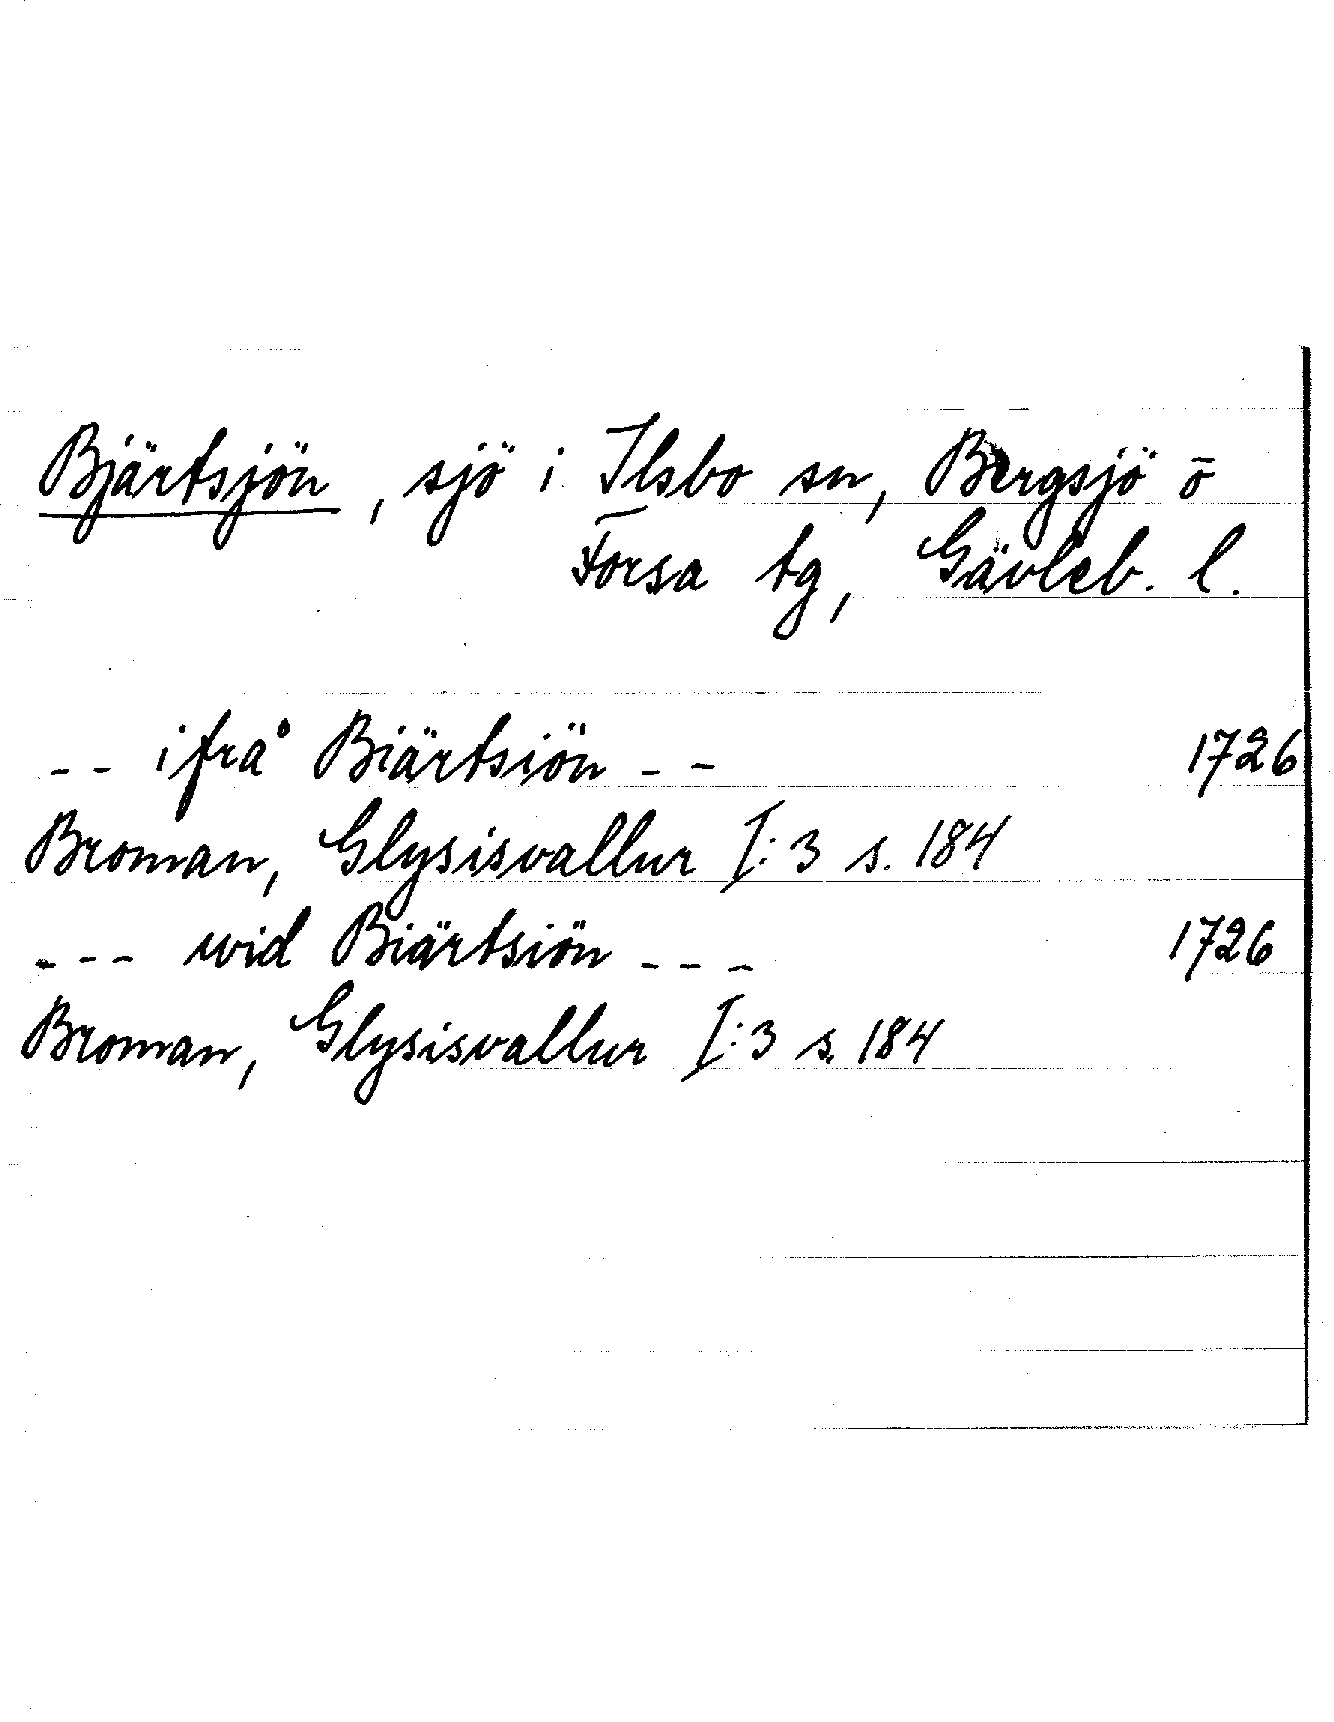 Bjärtsjön, sjö i Ilsbo sn, Bergsjö o
Forsa tg, Gävleb. l.
-- ifrå Biärtsiön -- 1726
Broman, Glysisvallur I:3 s. 184
--- wid Biärtsiön --- 1726
Broman, Glysisvallur I:3 s. 184